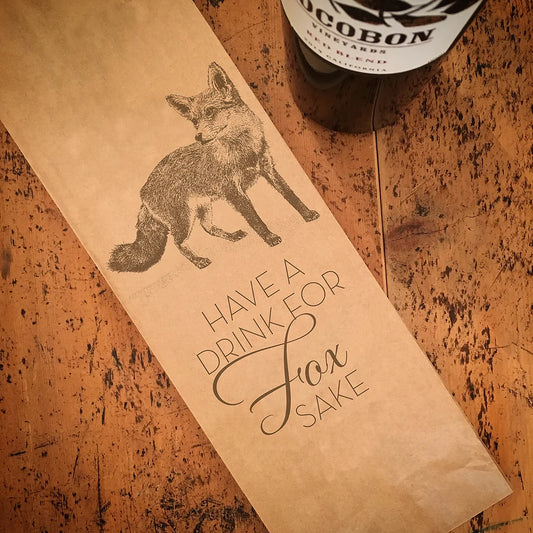 OCOBON
VINEYARDS
RED BLEND
CALIFORNIA
HAVE A
DRINK FOR
Fox
SAKE